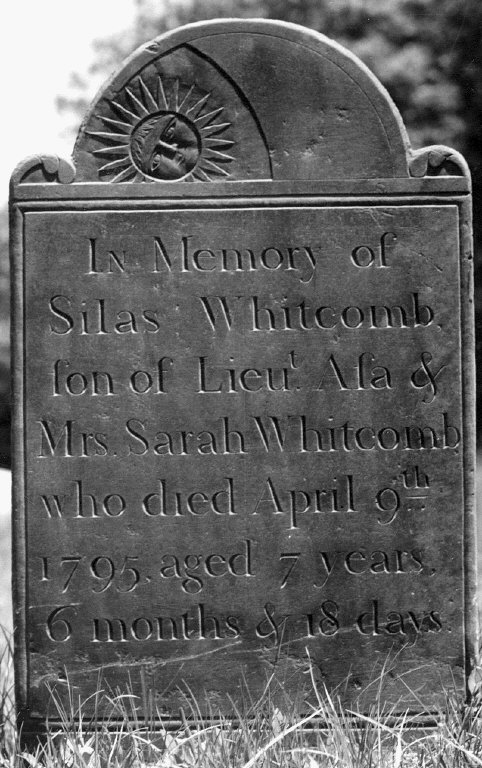 In Memory of
Silas Whitcomb,
ſon of Lieuᵗ. Aſa &
Mrs. Sarah Whitcomb
who died April 9ᵗʰ
1795, aged 7 years,
6 months & 18 days.